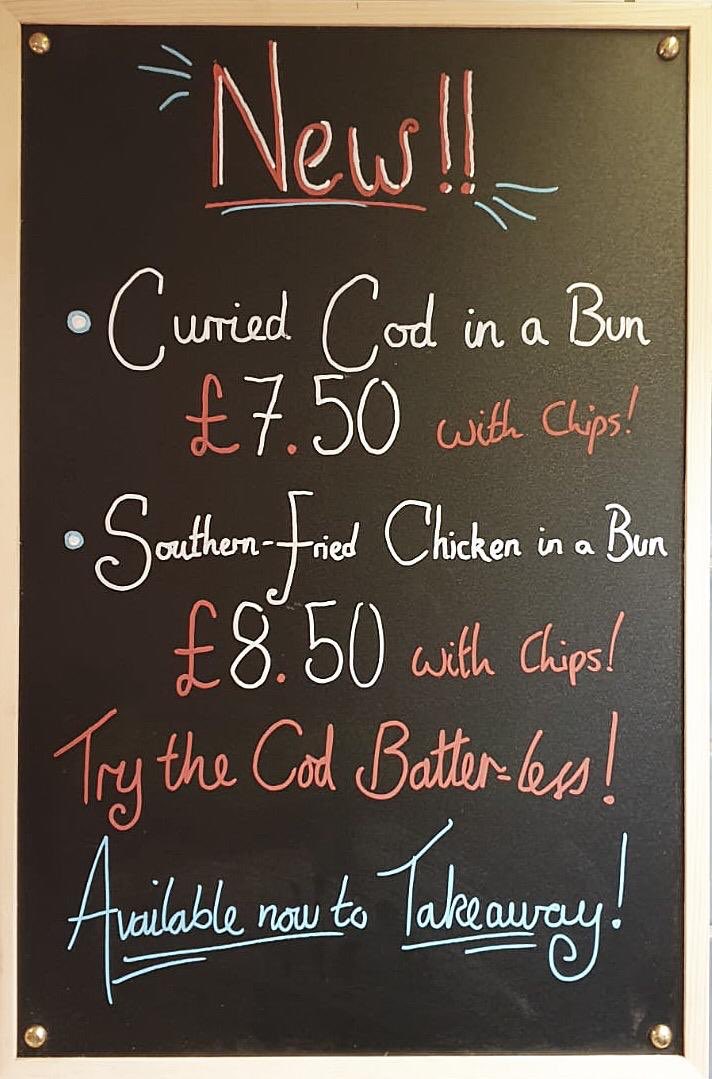 New!!
Curried Cod in a Bun
£7.50 with Chips!
Southern-Fried Chicken in a Bun
£8.50 with Chips!
Try the Cod Batter-less!
Available now to Takeaway!